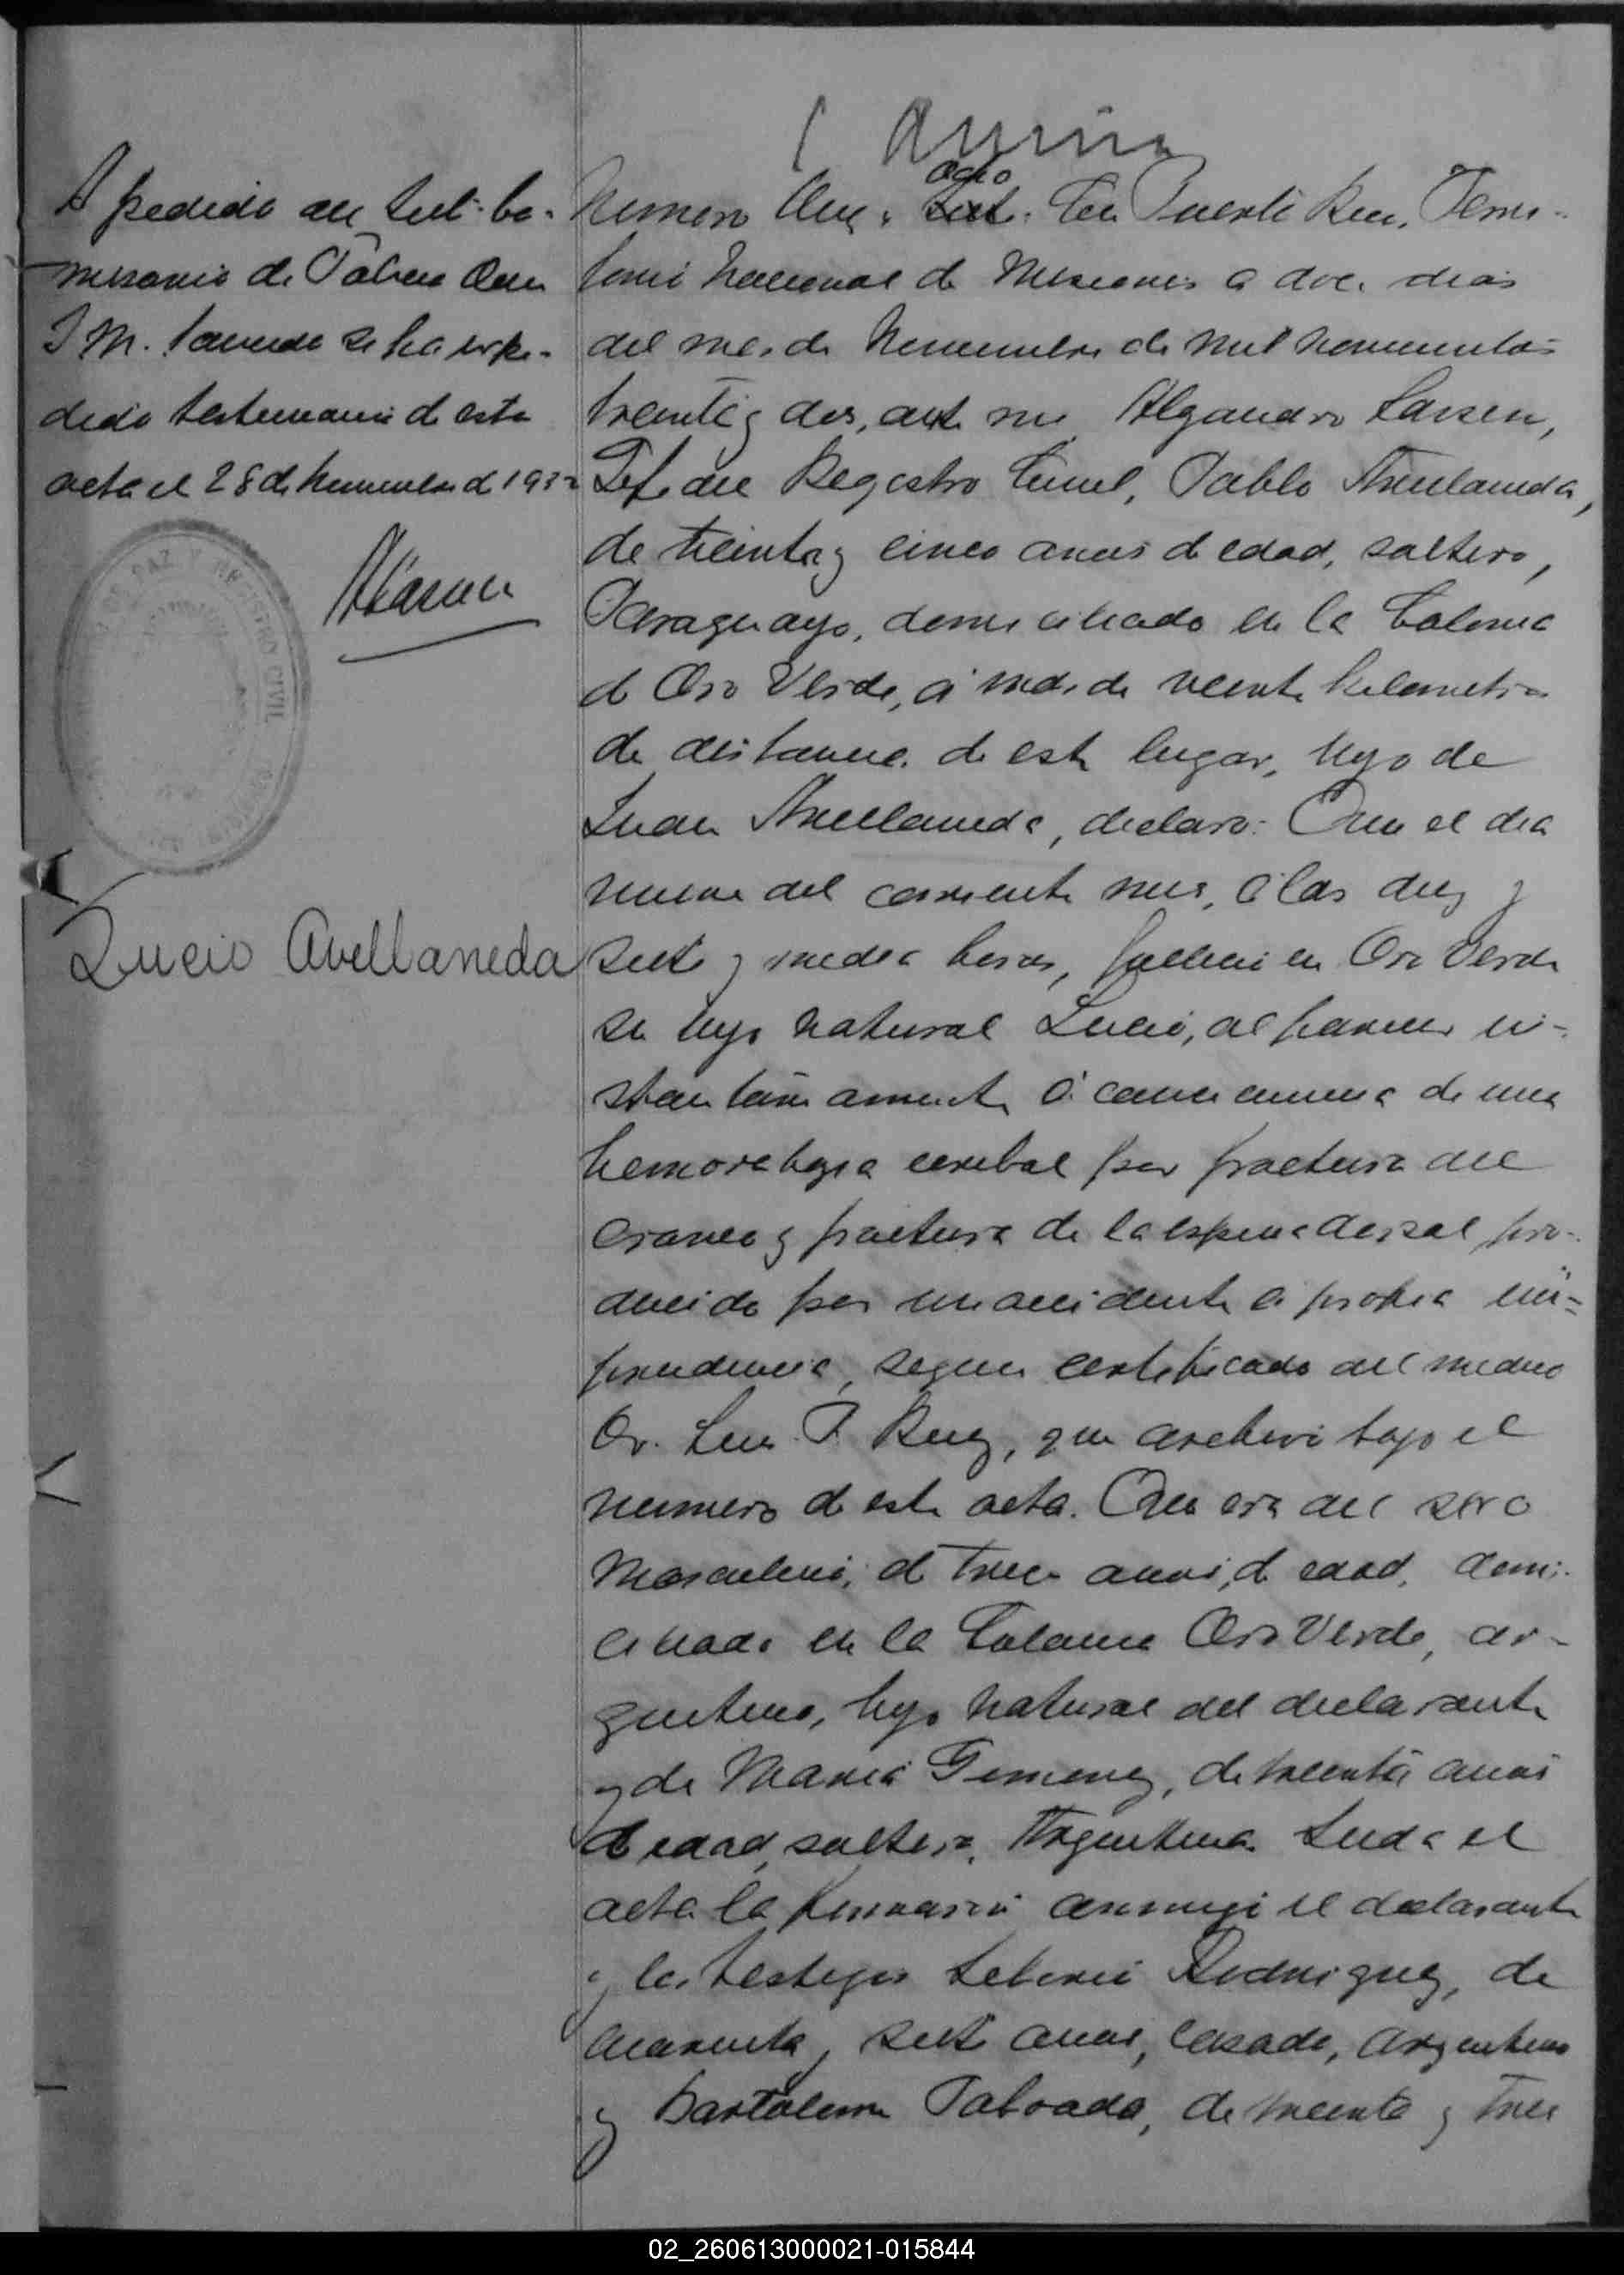 A pedido del Sub-Co-
misario de Policia Don
J M. se ha expe-
dido testimonio de esta
acta el 28 de Noviembre de 1932
ALarsen
DE PAZ Y REGISTRO CIVIL
Lucio Avellaneda
ocho
Numero En Puerto Rico, Terri-
torio Nacional de Misiones a doce dias
del mes de Noviembre de mil novecientos
treinta y dos, ante mi Alejandro Larsen,
Jefe del Registro Civil, Pablo Avellaneda,
de treinta y cinco anos de edad, soltero,
Paraguayo, domiciliado en la Colonia
de Oro Verde, á mas de veinte kilometros
de distancia de este lugar, hijo de
Juan Avellaneda, declaro: Que el dia
nueve del corriente mes, á las diez y
siete y media horas, fallecio en Oro Verde
su hijo natural Lucio, al parecer in-
stantaneamente á consecuencia de una
hemorahgia cerebal por fractura del
craneo y fractura de la espina dorsal pro-
ducido por un accidente á propia im-
prudencia, segun certificado del medico
Dr. Luis P. Ruiz, que archivo bajo el
numero de este acta. Que era del sexo
Masculino, de trece anos, de edad, domi-
ciliado en la Colonia Oro Verde, ar-
gentino, hijo natural del declarante
y de Maria Gimenez, de treinta anos
de edad, soltera, Argentina. Leida el
acta la firmaron conmigo el declarante
y los testigos Rodriguez, de
cuarenta y siete anos, casado, argentino
y Bartolome Taboada, de treinta y tres
02_260613000021-015844